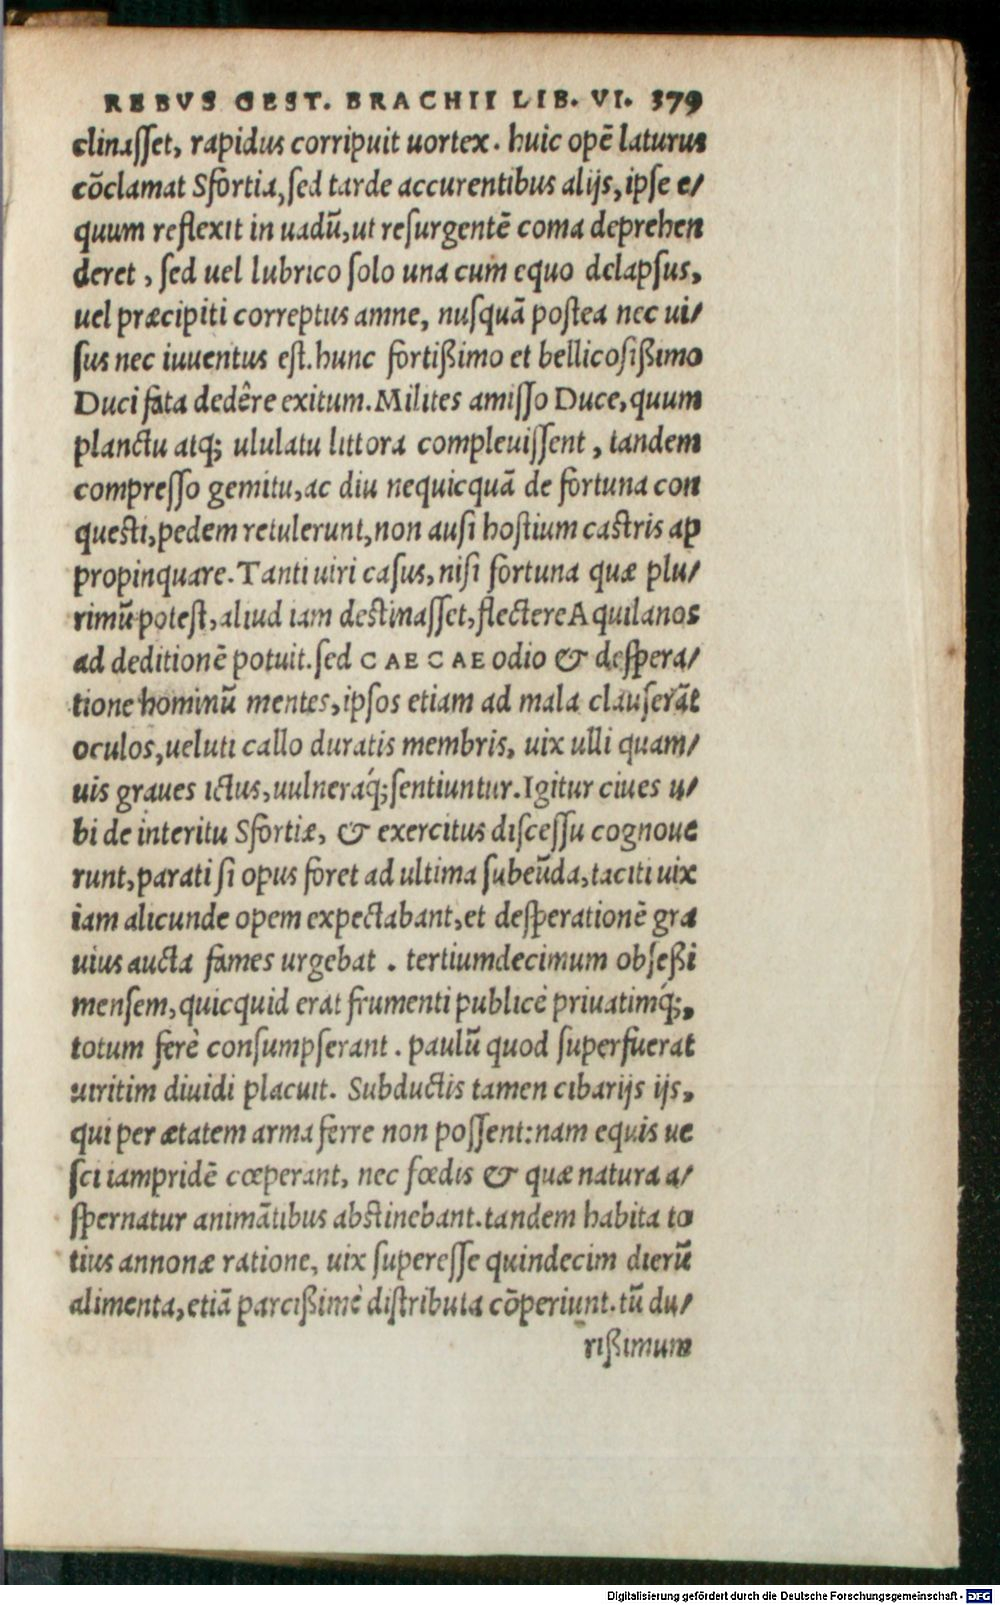 REBVS GEST. BRACHII LIB. VI. 379
clinasset, rapidus corripuit uortex. huic opē laturus
cōclamat Sfortia, sed tarde accurentibus alijs, ipse e/
quum reflexit in uadū, ut resurgentē coma deprehen
deret, sed uel lubrico solo una cum equo delapsus,
uel præcipiti correptus amne, nusquā postea nec ui/
sus nec iuuentus est. hunc fortißimo et bellicosißimo
Duci fata dedêre exitum. Milites amisso Duce, quum
planctu atq; ululatu littora compleuissent, tandem
compresso gemitu, ac diu nequicquā de fortuna con
questi, pedem retulerunt, non ausi hostium castris ap
propinquare. Tanti uiri casus, nisi fortuna quæ plu/
rimū potest, aliud iam destinasset, flectere Aquilanos
ad deditionē potuit. sed CAECAE odio & despera/
tione hominū mentes, ipsos etiam ad mala clauserāt
oculos, ueluti callo duratis membris, uix ulli quam/
uis graues ictus, uulneraq́; sentiuntur. Igitur ciues u/
bi de interitu Sfortiæ, & exercitus discessu cognoue
runt, parati si opus foret ad ultima subeūda, taciti uix
iam alicunde opem expectabant, et desperationē gra
uius aucta fames urgebat. tertiumdecimum obseßi
mensem, quicquid erat frumenti publicè priuatimq́;,
totum ferè consumpserant. paulū quod superfuerat
uiritim diuidi placuit. Subductis tamen cibarijs ijs,
qui per ætatem arma ferre non possent: nam equis ue
sci iampridē cœperant, nec fœdis & quæ natura a/
spernatur animātibus abstinebant. tandem habita to
tius annonæ ratione, uix superesse quindecim dierū
alimenta, etiā parcißimè distributa cōperiunt. tū du/
rißimum
Digitalisierung gefördert durch die Deutsche Forschungsgemeinschaft - DFG